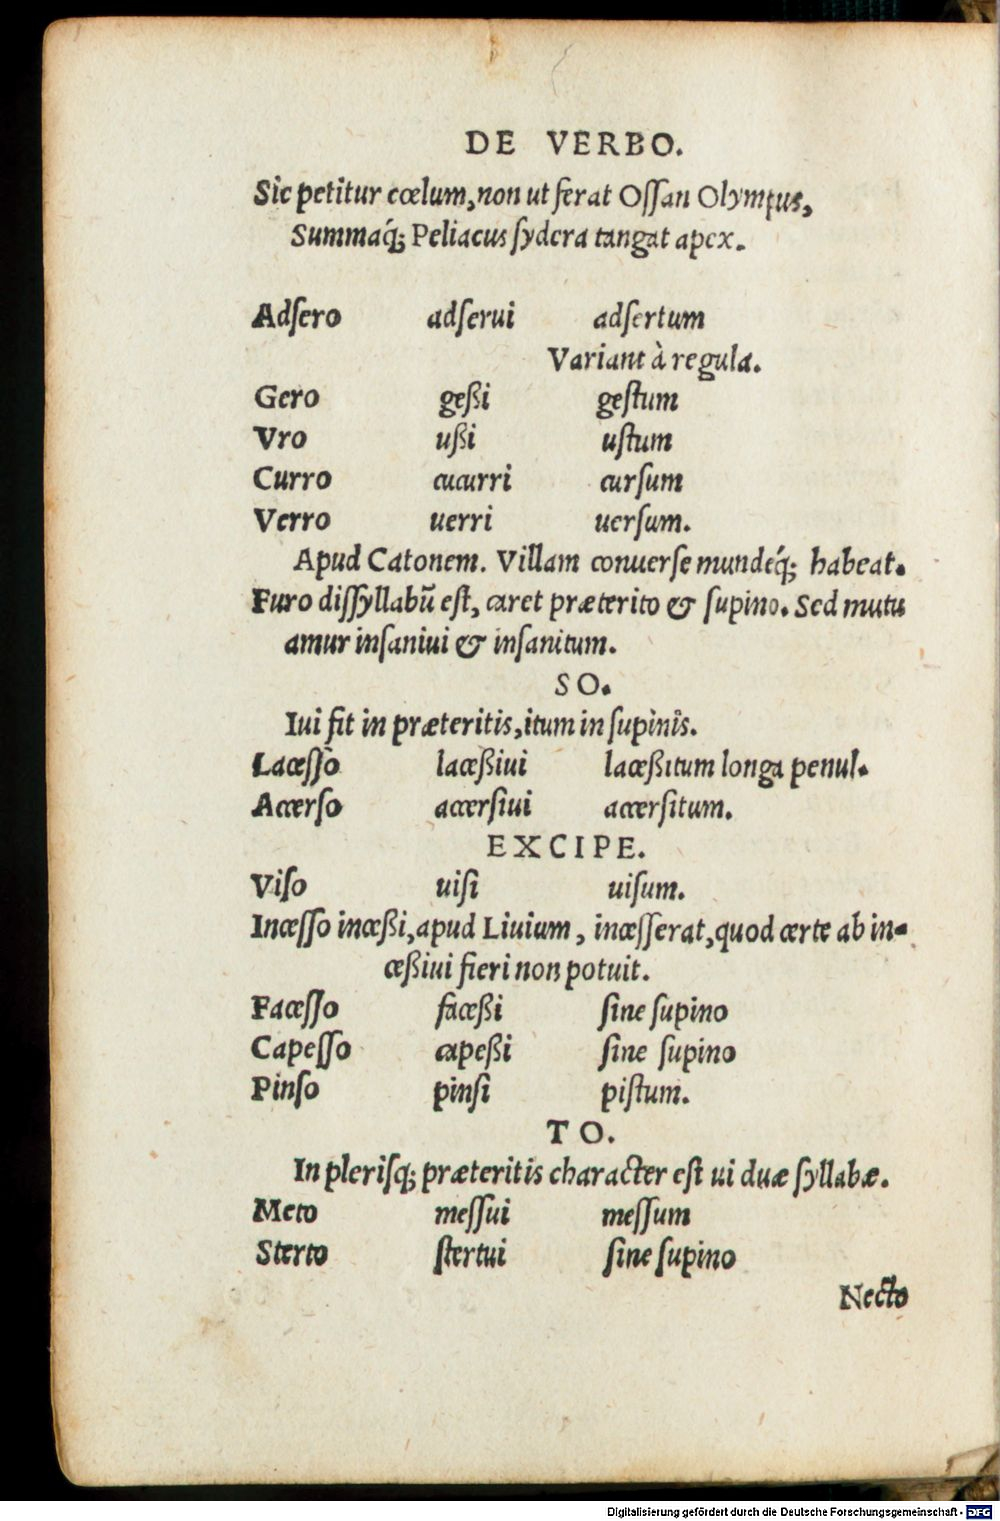 DE VERBO.
Sic petitur cœlum, non ut ferat Oſſan Olympus,
Summaq́; Peliacus ſydera tangat apex.
Adſero adſerui adſertum
Variant à regula.
Gero geßi geſtum
Vro ußi uſtum
Curro cucurri curſum
Verro uerri uerſum.
Apud Catonem. Villam conuerſe mundeq́; habeat.
Furo diſſyllabũ eſt, caret præterito & ſupino. Sed mutu
amur inſaniui & inſanitum.
SO.
Iui fit in præteritis, itum in ſupinis.
Laceſſo laceßiui laceßitum longa penul.
Accerſo accerſiui accerſitum.
EXCIPE.
Viſo uiſi uiſum.
Inceſſo inceßi, apud Liuium, inceſſerat, quod certe ab in-
ceßiui fieri non potuit.
Faceſſo faceßi ſine ſupino
Capeſſo capeßi ſine ſupino
Pinſo pinſi piſtum.
TO.
In pleriſq; præteritis character eſt ui duæ ſyllabæ.
Meto meſſui meſſum
Sterto ſtertui ſine ſupino
Necto
Digitalisierung gefördert durch die Deutsche Forschungsgemeinschaft - DFG